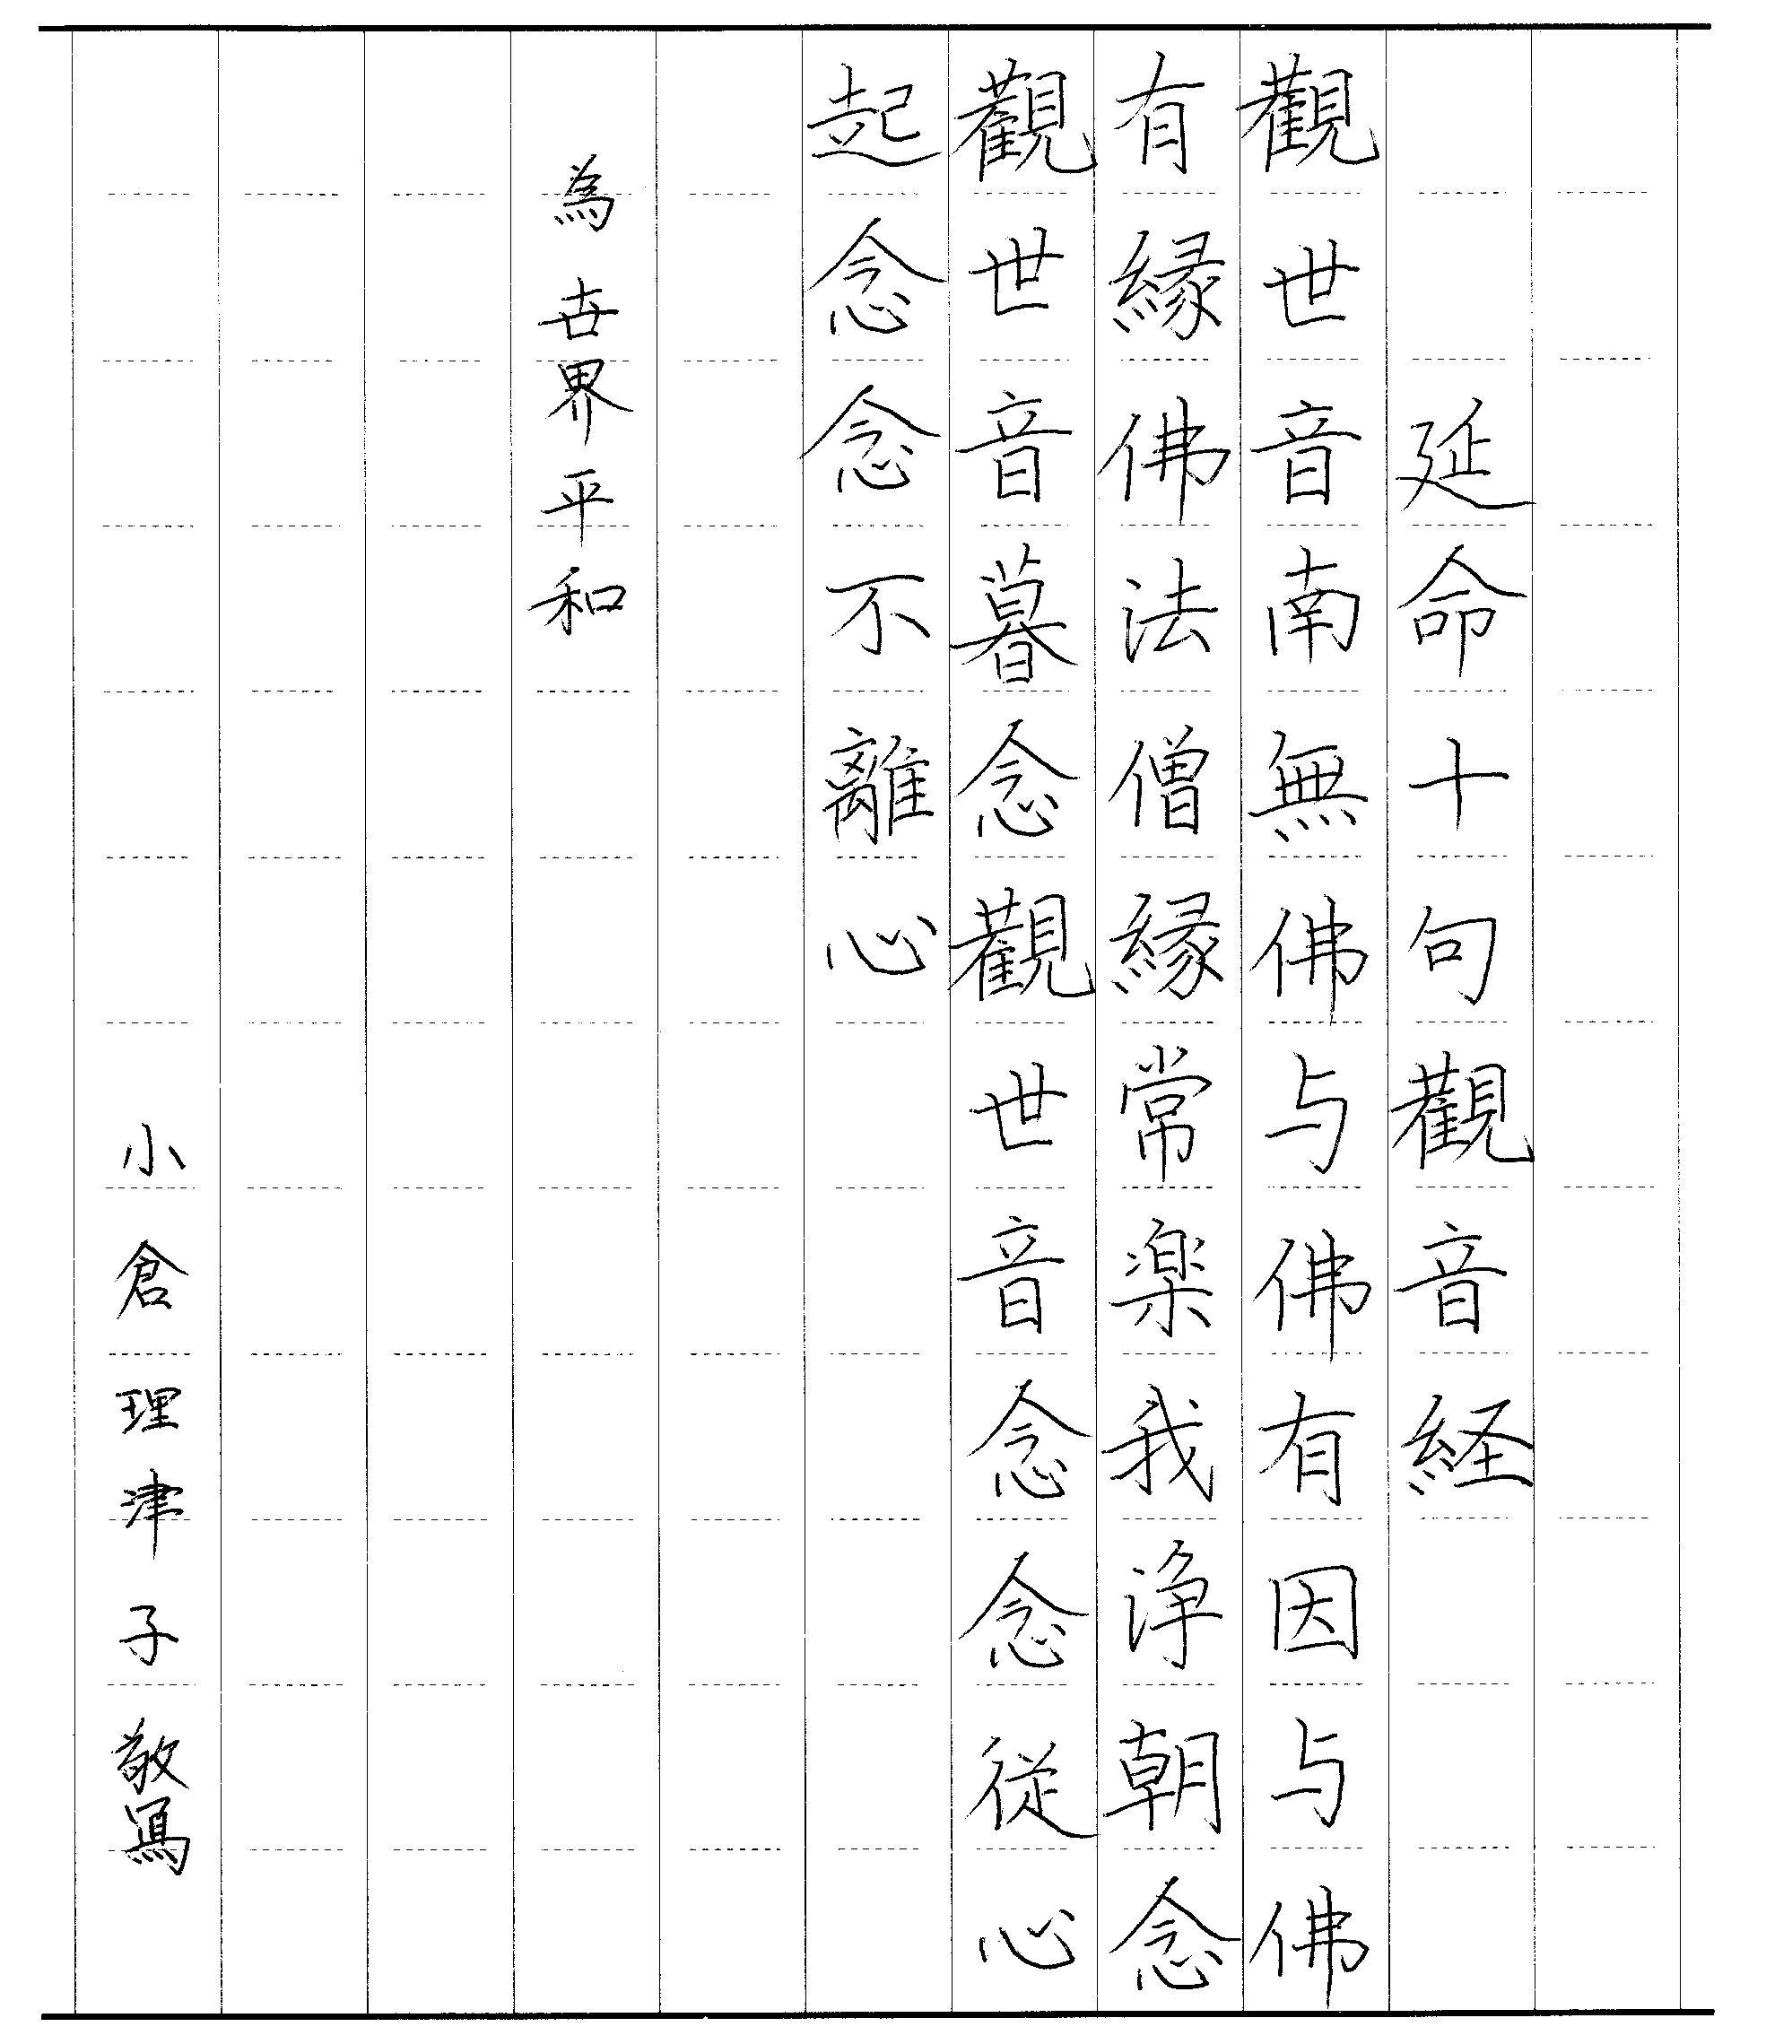 延命十句觀音経
觀世音南無佛与佛有因与佛
有縁佛法僧縁常楽我浄朝念
觀世音暮念觀世音念念従心
起念念不離心
為世界平和
小倉理津子敬寫